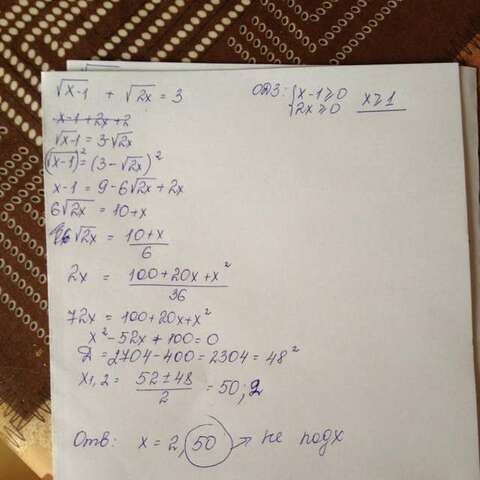 √x-1 + √2x = 3
ОДЗ: {x-1≥0
{2x≥0 x≥1
x-1+2x+2
√x-1 = 3-√2x
(√x-1)² = (3-√2x)²
x-1 = 9-6√2x+2x
6√2x = 10+x
√2x = 10+x / 6
2x = 100+20x+x² / 36
72x = 100+20x+x²
x²-52x+100=0
D = 2704-400 = 2304 = 48²
x1,2 = 52±48 / 2 = 50; 2
Отв: x = 2, 50 → не подх